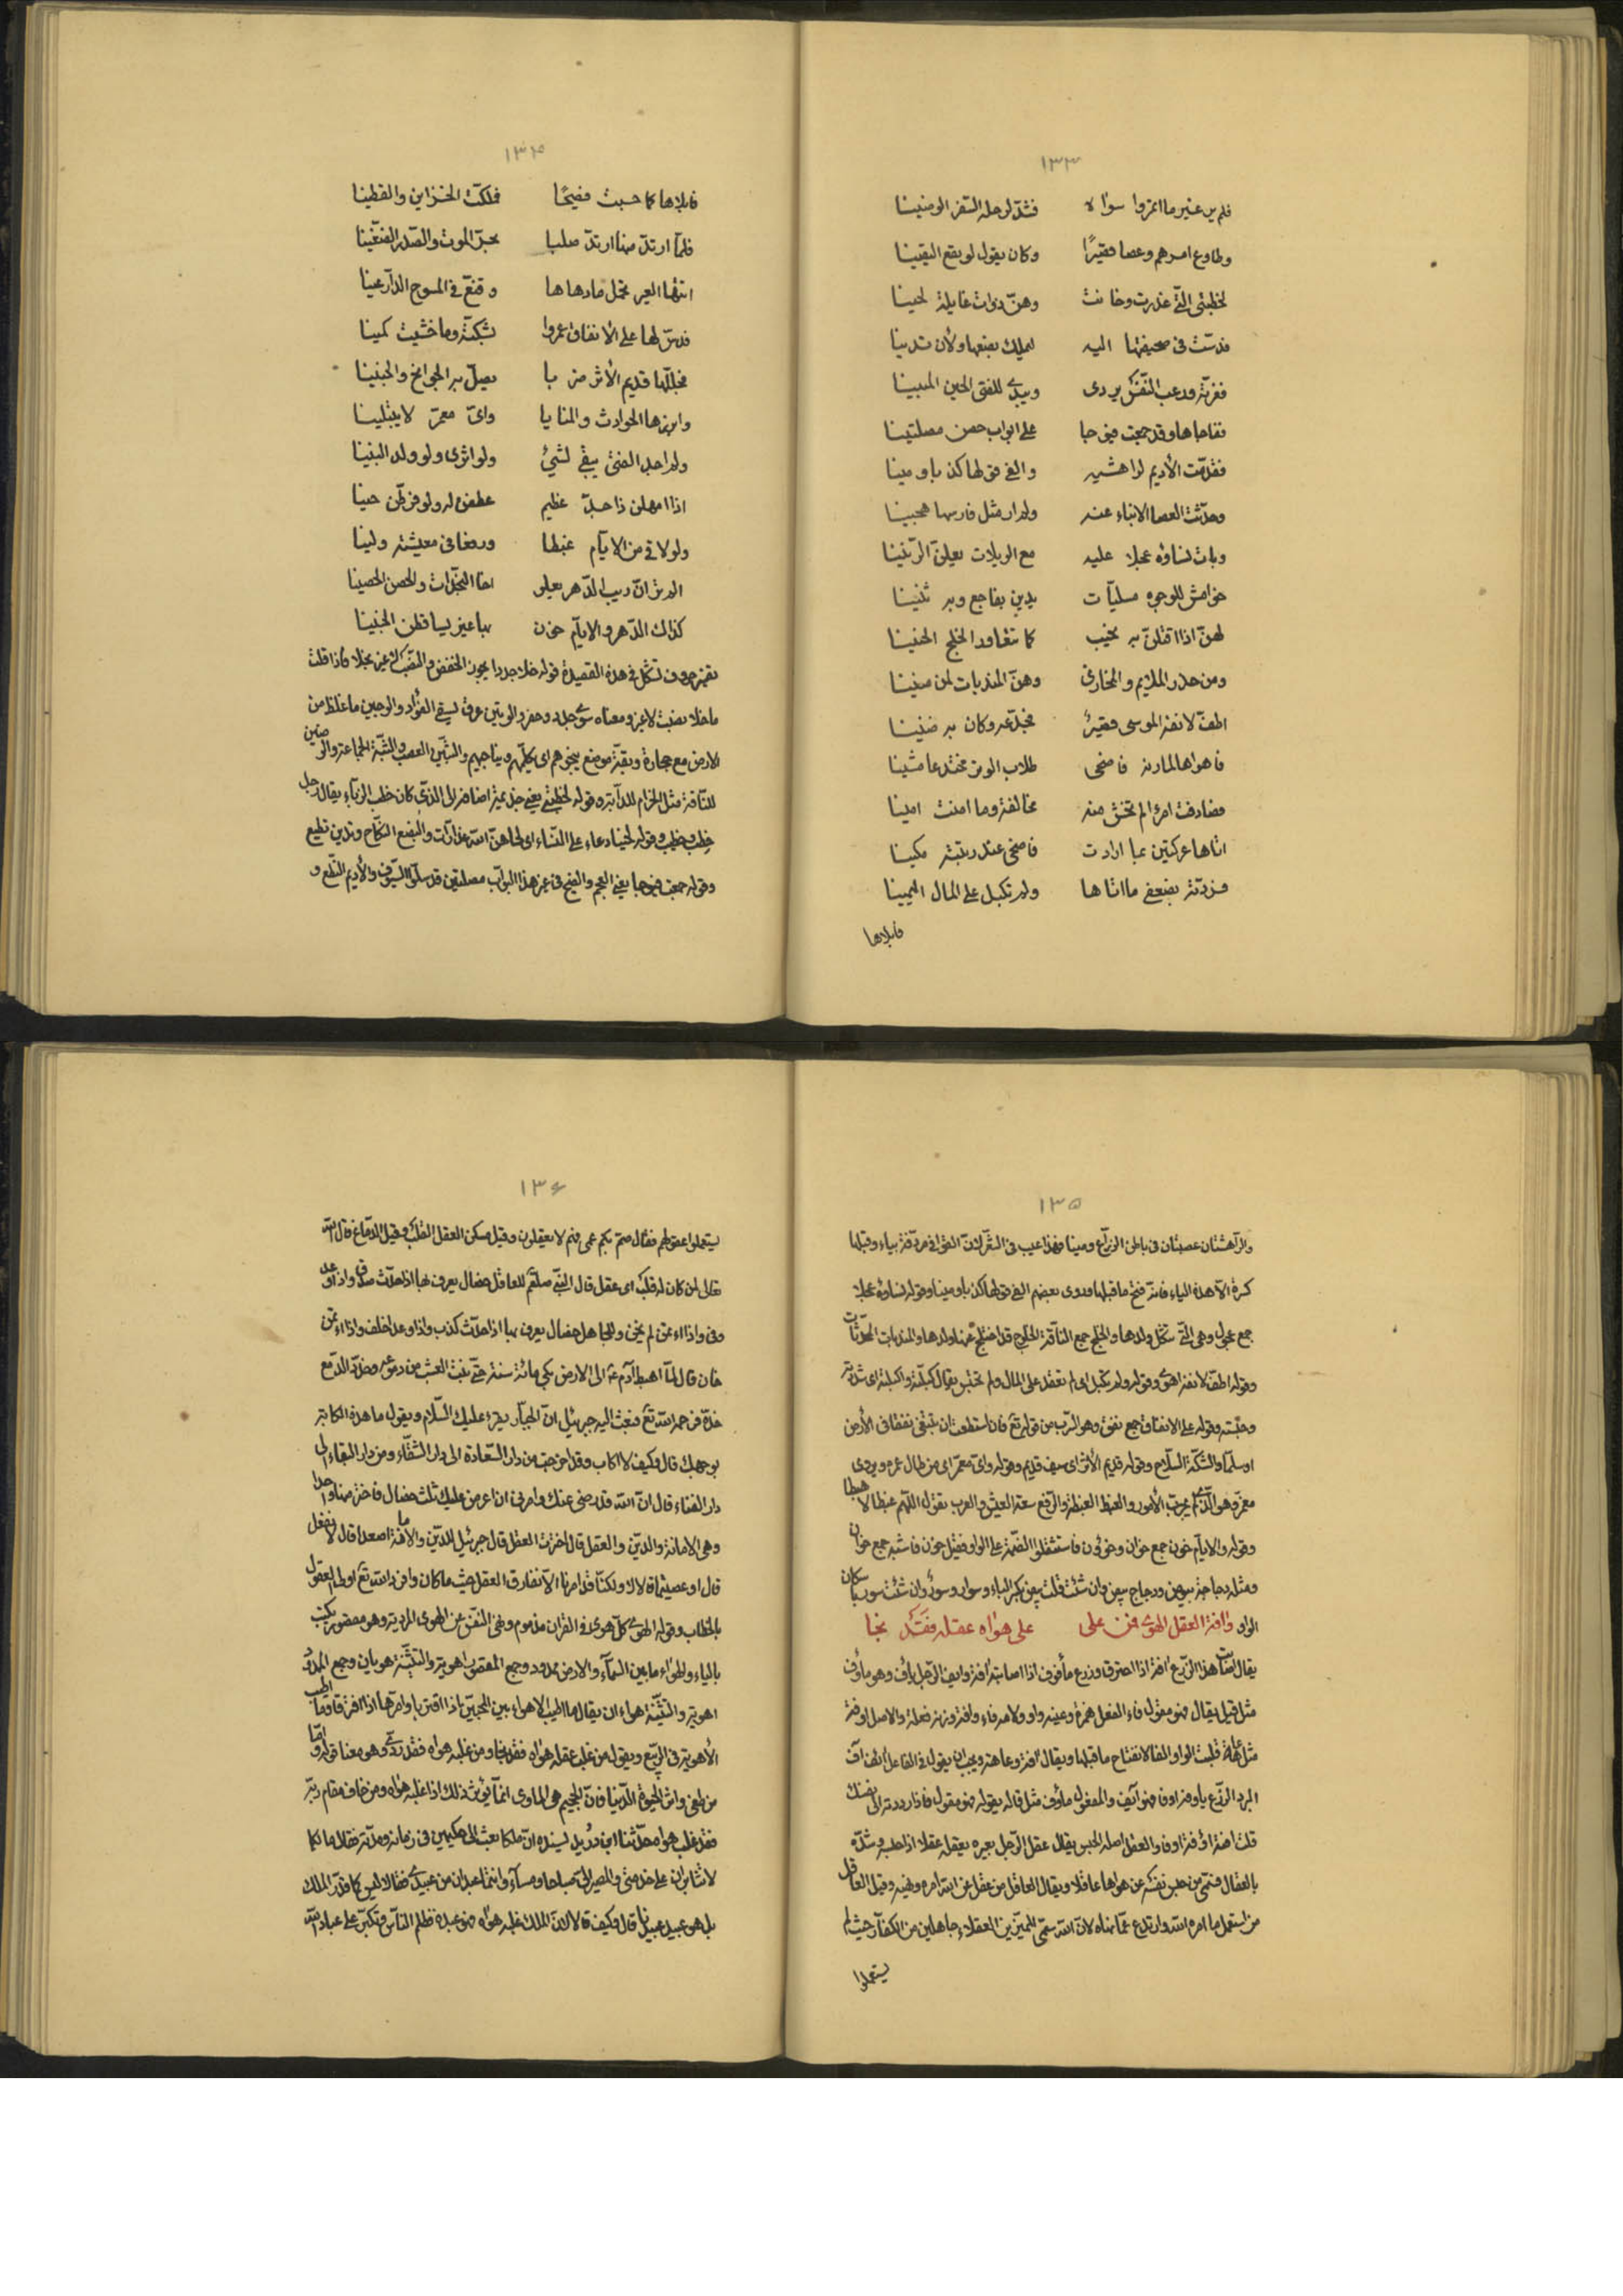 ١٣٣
فلم ير غير ما ائمروا سواه فشد لرحله السفر الوضينا
وطاوع امرهم وعصا قصيرًا وكان يقول لو يقع اليقينا
لخطبتى التى غدرت وخانت وهن ذوات غايلة لحينا
فدست فى صحيفتها اليه ليملك بضعها ولأن تدينا
فغرته ورغب النفس يردى ويبدى للفتى الحين المبينا
ففاجاها وقد جمعت فيوجا على ابواب حصن مصلتينا
فقدمت الأديم لراهشيه والفى قولها كذبا ومينا
وحدثت العصا الانباء عنه ولم ار مثل فارسها هجينا
وباتت نساؤه عجلا عليه مع الويلات يعلن الرنينا
خوامش للوجوه مسليات يدين بفاجع وبه ثنينا
لهن اذا اقتلن به نحيب كما تتعاود الخلج الحنينا
ومن حذر الملايم والمخازى وهن المنديات لمن منينا
اطف لانفه الموسى قصير ليجدعه وكان به ضنينا
فاهواها لمارنه فاضحى طلاب الوتر مجتدعا مشينا
فصادفت امرءا لم تخش منه مخالفة وما امنت امينا
اتاها عركتين بما ارادت فاضحى عند ربته مكينا
فزدته بضعفى ما اتاها ولم تكبل على المال اليمينا
فابلاها
١٣٤
فابلاها كما حسبت فصيحًا فملكت الخزاين والقطينا
فلما ارتد منها ارتد صلبا بجر الموت والصدر الضغينا
اتتها العير تحمل ما دهاها وقنع فى المسوح الدارعينا
فدس لها على الأنفاق عمروا بشكته وما خشيت كمينا
فجللها قديم الأثر ضربا يصل به الحواجب والجبينا
وابرزها الحوادث والمنايا واى معمر لا يبتلينا
ولم اجد الفتى يبقى لشئ ولو اثرى ولو ولد البنينا
اذا امهلن ذا جد عظيم عطفن له ولو فرطن حينا
ولو لاقى من الايام غبطا ورفغا فى معيشته ولينا
الم تر ان ريب الدهر يعلو اخا النجدات والحصن الحصينا
كذاك الدهر والايام خون بها عير يساقطن الجنينا
تفسير حروف تشكل فى هذه القصيدة قوله خلا جددا يجوز الخفض والنصب كان غير نجلا فاذا قلت
ما خلا نصبت لا غير ومعناه سوى جلد وحفر والوتين عرق يسقى الفؤاد والوجين ما غلظ من
الارض مع حجارة وبقة موضع ينجوهم اى يكلمهم ويناجيهم والثبين العصب والثبة الجماعة والوضين
للناقة مثل الحزام للدابة وقوله لخطبتى يعنى جذيمة اضافه الى الذى كان خطب الزباء يقال رجل
خِطب وخطيب وقوله لحينا دعاء على النساء اى لحاهن الله غدارات والبضع النكاح وتدين تطيع
وقوله جمعت فيوجا يعنى العجم والفيج فى غير هذا البواب مصلتين قد سلوا السيوف والأديم النطع و
١٣٥
والراهشان عصبتان فى باطن الذراع ومينا فهذا عيب فى الشعر لان القوافى مردفة بياء وقبلها
كسرة الا هذه الياء فانه فتح ما قبلها وروى بعضهم الفى قولها كذبا ومينا وقوله نساؤه عجلا
جمع عجول وهى التى تثكل ولدها والخلج جمع الناقة الخلوج قد اختلج عنها ولدها والمنديات المحدثات
وقوله اطف لانفه اهوى وقوله ولم تكبل اى لم تعقد على المال ولم تحتبس يقال كبلته واكبلته اى شددته
وحبسته وقوله على الانفاق جمع نفق وهو السرب من قوله تع فان استطعت ان تبتغى نفقا فى الأرض
او سلما والشكة السلاح وقوله قديم الأثر اى سيف قديم وقوله واى معمر اى من طال عمره ويروى
معمر وهو الذى لم يجرب الأمور والغبط الغبطة والرفغ سعة العيش والعرب تقول اللهم غبطا لا هبطا
وقوله والايام خون جمع خوان وخؤون فاستثقلوا الضمة على الواو فقيل خون فاشبه جمع خوان
ومثله دجاجة بيوض ودجاج بيض وان شئت قلت بيض بكسر الباء وسوار وسوؤر وان شئت سور باسكان
الواو وافة العقل الهوى فمن على على هواه عقله فقد نجا
يقال اصابت هذا الزرع افة اذا احترق وزرع مأفوف اذا اصابته افة وايف الرجل يأوف وهو مأوف
مثل قيل يقال هو مقول فاء الفعل همزة وعينه واو ولامه فاء وافة وزنه فعلة والاصل اوفة
مثل عاهة قلبت الواو الفا لانفتاح ما قبلها ويقال افة وعاهة ويجب ان يقول فى الفاعل آئف اف
البرد الزرع ياوفه اوفا هو آئف والمفعول مأوف مثل قاله يقوله هو مقول فاذا رددته الى نفسك
قلت افته اوفه اوفا والعقل اصله الحبس يقال عقل الرجل بعيره يعقله عقلا اذا حبسه وشده
بالعقال فسمى من حبس نفسه عن هواها عاقلا ويقال العاقل من عقل عن الله امره ونهيه وقيل العاقل
من استعمل ما امره الله وارتدع عما نهاه لان الله سمى المميزين العقلاء جاهلين من الكفار حيث لم
يستعملوا
١٣٦
يستعملوا عقولهم فقال صم بكم عمى فهم لا يعقلون وقيل مسكن العقل القلب وقيل الدماغ قال الله
تعالى لمن كان له قلب اى عقل قال النبى صلعم للعاقل خصال يعرف بها اذا حدث صدق واذا وعد
وفى واذا اؤتمن لم يخن وللجاهل خصال يعرف بها اذا حدث كذب واذا وعد اخلف واذا اؤتمن
خان قال لما اهبط آدم ع الى الارض بكى مائة سنة حتى نبت العشب من دموعه وخد الدمع
خده فرحمه الله تع فبعث اليه جبرئيل ان الجبار يقرء عليك السلام ويقول ما هذه الكابة
بوجهك قال وكيف لا اكاب وقد اخرجت من دار السعادة الى دار الشقاء ومن دار البقاء الى
دار الفناء قال ان الله قد رضى عنك وامرنى ان اعرض عليك ثلث خصال فاختر منها واحدا
وهى الامانة والدين والعقل قال اخترت العقل قال جبرئيل للدين والامانة اصعدا قالا لا نفعل
قال او عصيتما قالا لا ولكنا قد امرنا الا نفارق العقل حيث ما كان وافرد الله تع اولى العقول
بالخطاب وقوله الهوى كل هوى فى القران مذموم ونهى النفس عن الهوى المردية وهو مقصور يكتب
بالياء والهواء ما بين السماء والارض ممدود وجمع المقصور اهوية والتثنية هويان وجمع الممدود
اهوية والتثنية هواءان يقال ما اطيب الاهواء بين المحبين اذا اقتربا وامرها اذا افترقا وما اطيب
الأهوية فى الربيع ويقول من غلب عقله هواه فقد نجا ومن غلبه هواه فقد ردى وهو معنا قوله واما
من طغى واثر الحيوة الدنيا فان الجحيم هى الماوى انما يؤثر ذلك اذا غلبه هواه ومن خاف مقام ربه
فقد غلب هواه حدثنا ابن دريد بسنده ان ملكا بعث الى حكيمين فى زمانه ومدته فقال ما لكما
لا تثابران على خدمتى والمصير الى صباحا ومساء وانتما عبدان من عبيدى فقالا ليس كما قدر الملك
بل هو عبيد عبيدنا قال وكيف قالا لان الملك غلبه هواه فهو عبده فظلم الناس وتكبر على عباد الله